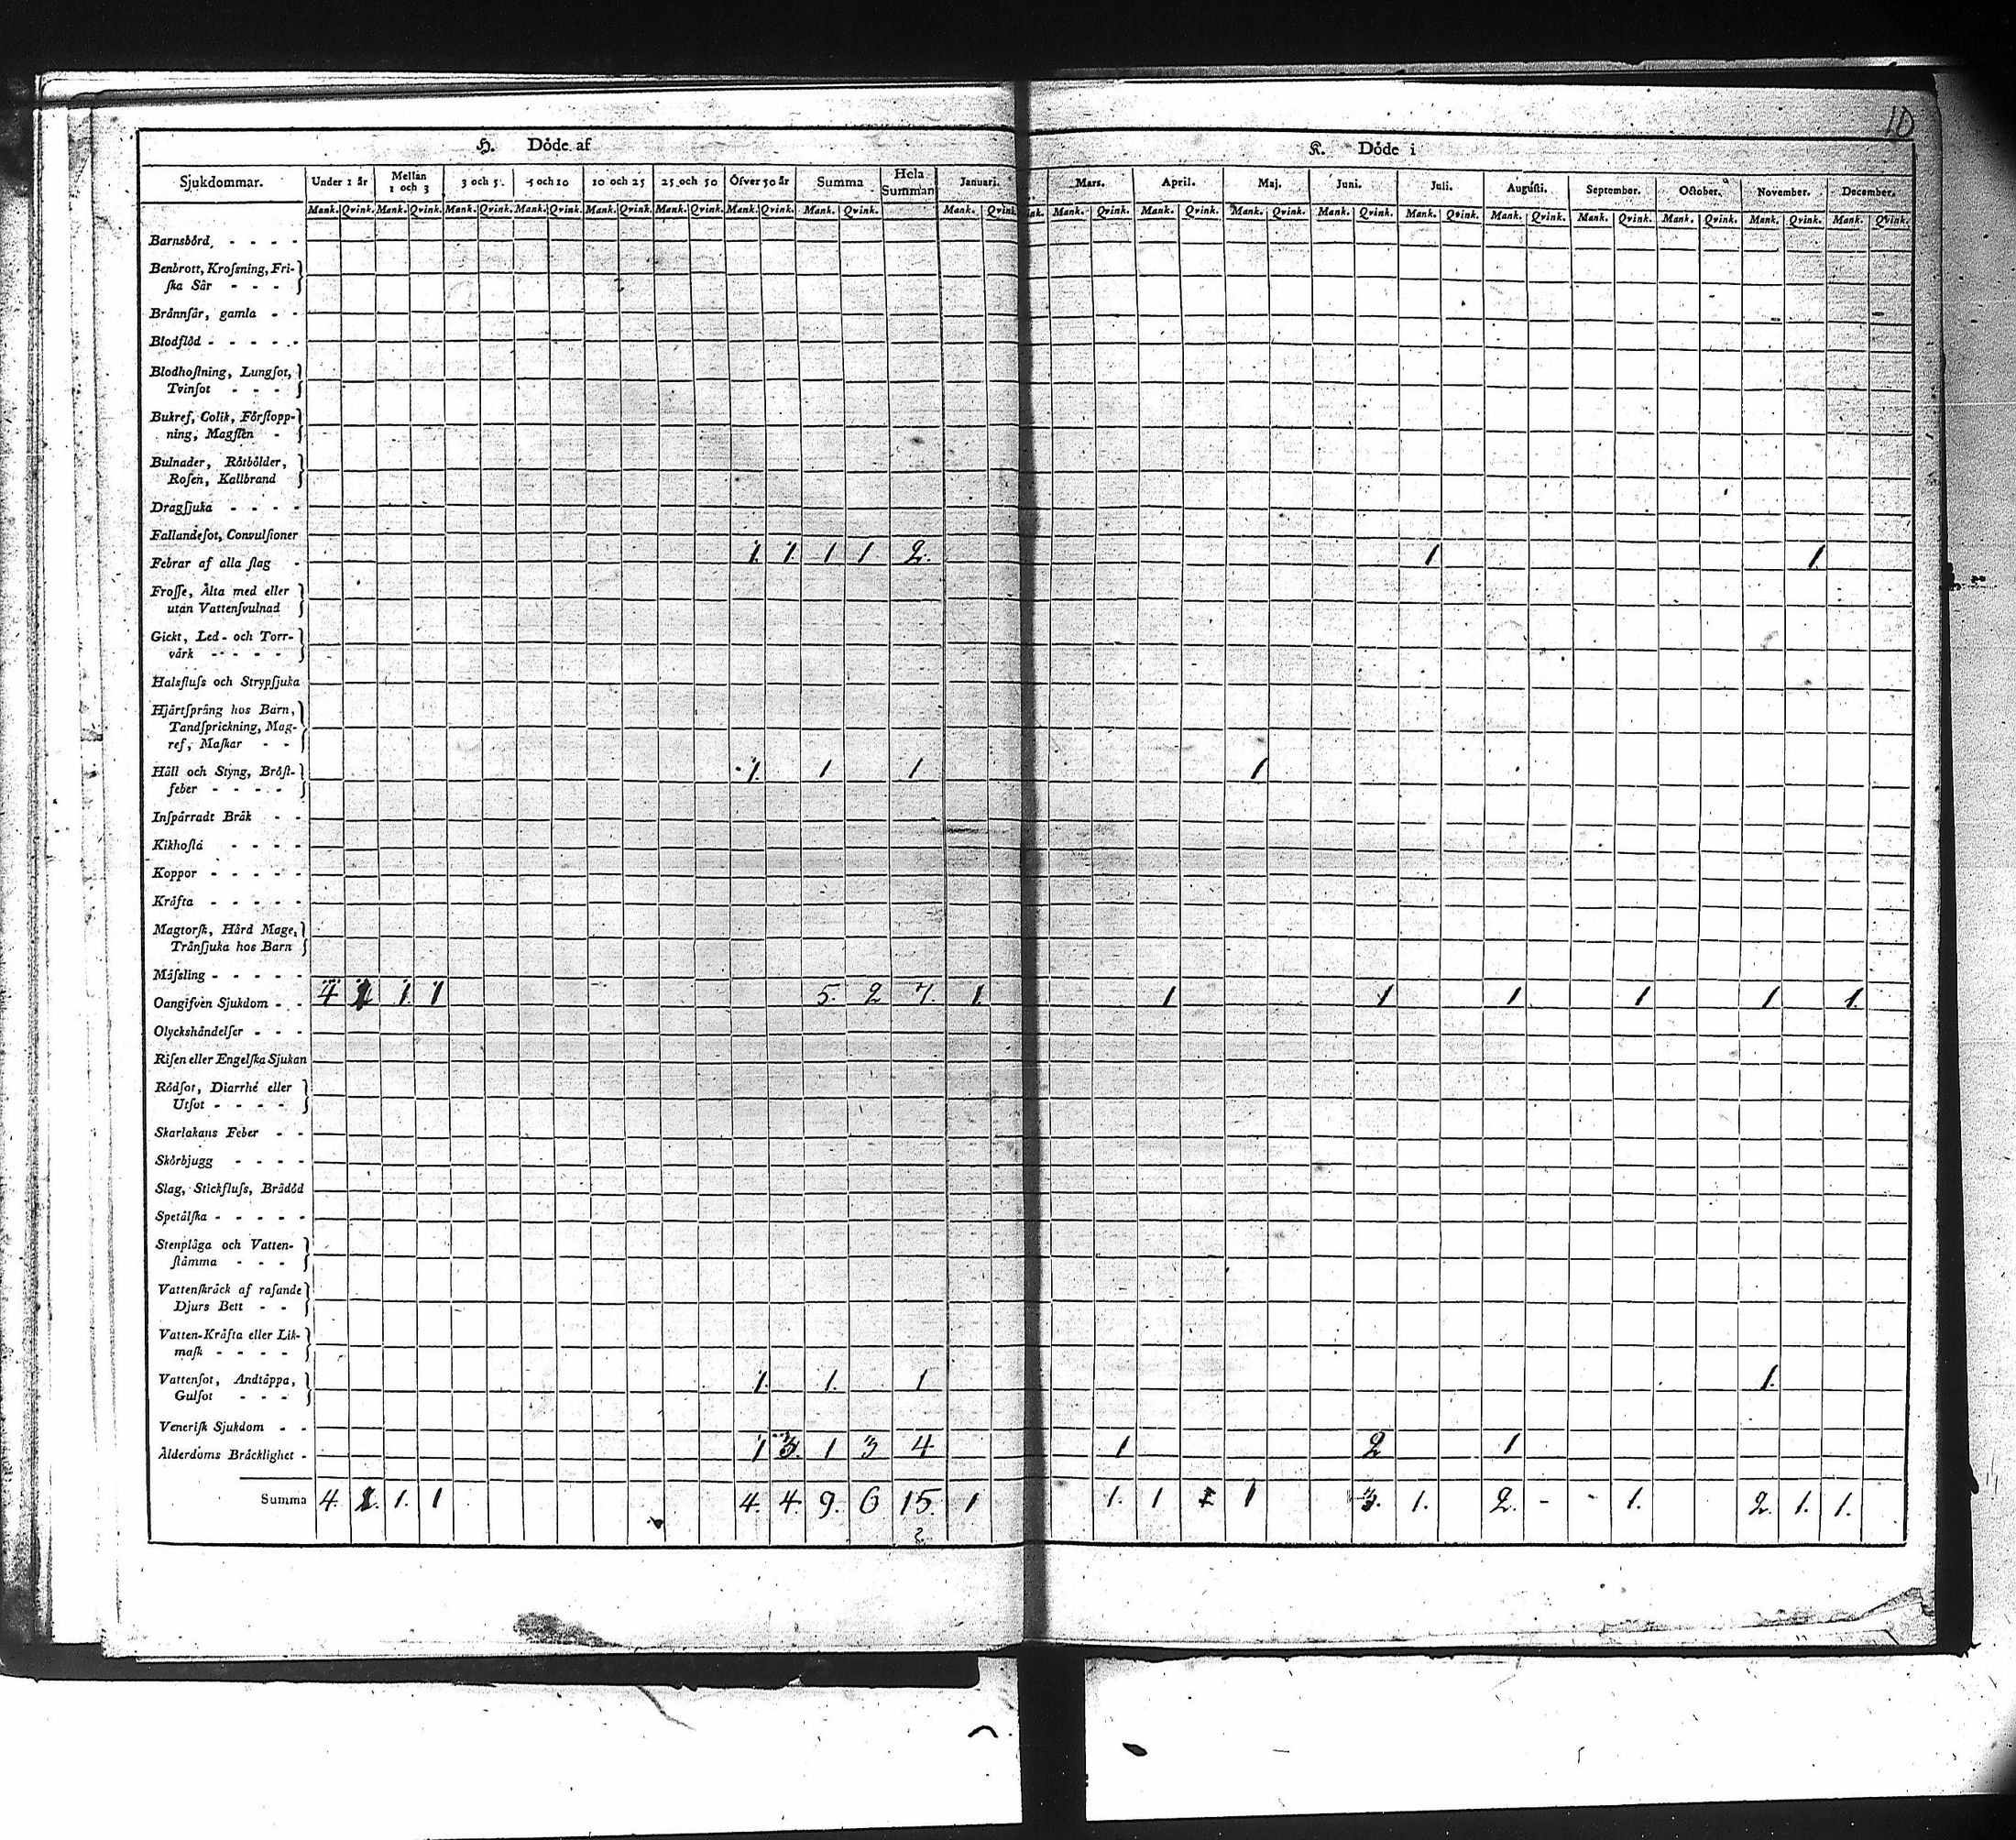 10
H. Döde af
K. Döde i
Sjukdommar. Under 1 år Mellan 1 och 3 3 och 5. 5 och 10 10 och 25 25 och 50 Öfver 50 år Summa Hela Summan Januari. Mars. April. Maj. Juni. Juli. Augusti. September. October. November. December.
Mank. Qvink. Mank. Qvink. Mank. Qvink. Mank. Qvink. Mank. Qvink. Mank. Qvink. Mank. Qvink. Mank. Qvink. Mank. Qvink. Mank. Qvink. Mank. Qvink. Mank. Qvink. Mank. Qvink. Mank. Qvink. Mank. Qvink. Mank. Qvink. Mank. Qvink. Mank. Qvink. Mank. Qvink.
Barnsbörd, - - - -
Benbrott, Kroſsning, Fri-
ſka Sår - - -
Brännſår, gamla - -
Blodflöd - - - - -
Blodhoſtning, Lungſot,
Tvinſot - - - -
Bukref, Colik, Förſtopp-
ning, Magſten -
Bulnader, Rötbölder,
Roſen, Kallbrand
Dragſjuka - - - -
Fallandeſot, Convulſioner
Febrar af alla ſlag - 1. 1. 1 1 2. 1 1.
Froſſe, Älta med eller
utan Vattenſvulnad
Gickt, Led- och Torr-
värk - - - - -
Halsfluſs och Strypſjuka
Hjärtſpräng hos Barn,
Tandſprickning, Mag-
ref, Maſkar - -
Håll och Styng, Bröſt-
feber - - - - 1. 1 1 1
Inſpärradt Bråk - -
Kikhoſta - - - -
Koppor - - - - -
Kräfta - - - - -
Magtorſk, Hård Mage,
Trånſjuka hos Barn
Mäſsling - - - - -
Oangifven Sjukdom - - 4 1. 1 5. 2 7. 1. 1 1 1 1 1 1.
Olyckshändelſer - - -
Riſen eller Engelſka Sjukan
Rödſot, Diarrhé eller
Utſot - - - -
Skarlakans Feber - -
Skörbjugg - - - -
Slag, Stickfluſs, Brådöd
Spetälſka - - - - -
Stenplåga och Vatten-
ſtämma - - -
Vattenſkräck af raſande
Djurs Bett - -
Vatten-Kräfta eller Lik-
maſk - - - -
Vattenſot, Andtäppa,
Gulſot - - - 1. 1. 1 1.
Veneriſk Sjukdom - -
Ålderdoms Bräcklighet - 1 3. 1 3 4 1 2 1
Summa 4. 1. 1 4. 4. 9. 6 15. 1 1. 1 1 3. 1. 2. - - 1. 2. 1. 1.